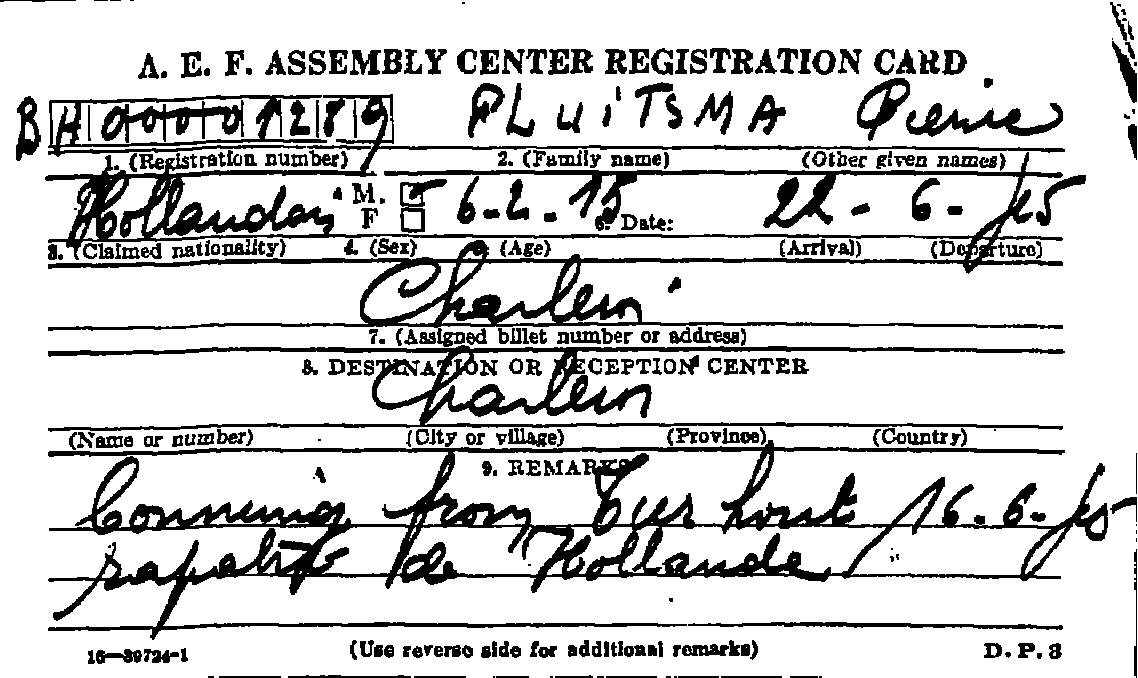 A. E. F. ASSEMBLY CENTER REGISTRATION CARD
BH 00001289 PLUITSMA Pierre
1. (Registration number) 2. (Family name) (Other given names)
Hollandais M. F 6-2-15 6. Date: 22-6-45
3. (Claimed nationality) 4. (Sex) 5. (Age) (Arrival) (Departure)
Charleroi
7. (Assigned billet number or address)
8. DESTINATION OR RECEPTION CENTER
Charleroi
(Name or number) (City or village) (Province) (Country)
9. REMARKS
Comming from Turhout 16-6-45
rapatrié de Hollande
16—39724-1 (Use reverse side for additional remarks) D. P. 3